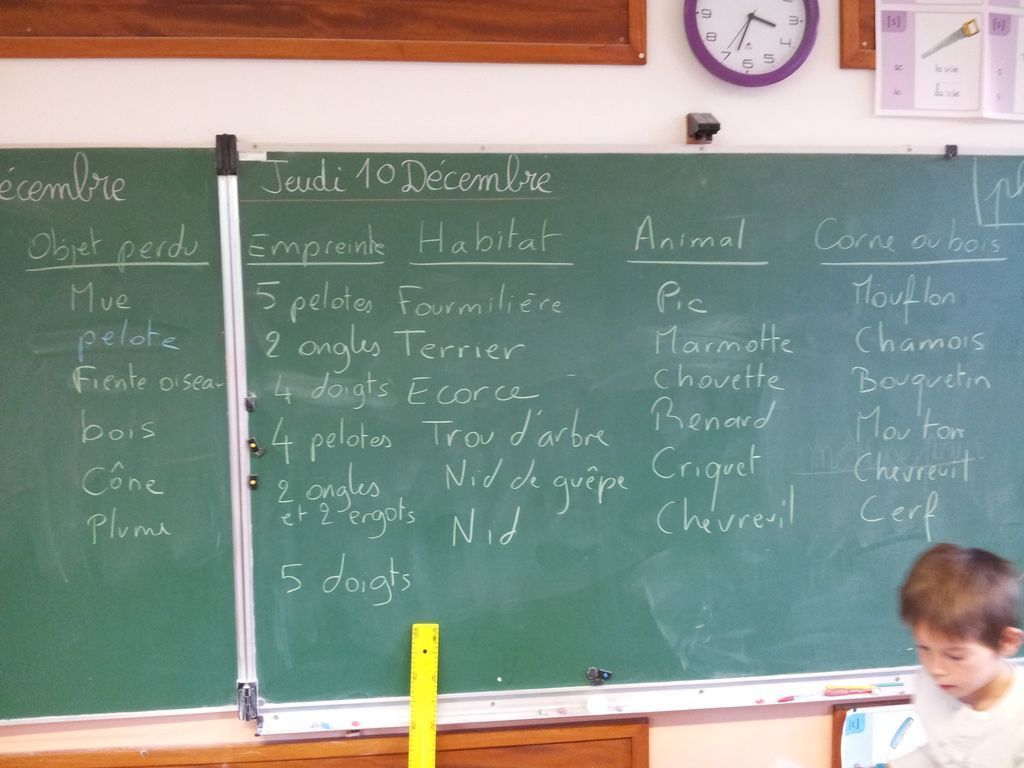 écembre
Objet perdu
Mue
pelote
Fiente oiseau
bois
Cône
Plume
Jeudi 10 Décembre
Empreinte
5 pelotes
2 ongles
4 doigts
4 pelotes
2 ongles
et 2 ergots
5 doigts
Habitat
Fourmilière
Terrier
Ecorce
Trou d'arbre
Nid de guêpe
Nid
Animal
Pic
Marmotte
Chouette
Renard
Criquet
Chevreuil
Corne ou bois
Mouflon
Chamois
Bouquetin
Mouton
Chevreuil
Cerf
9
8
7
6
5
4
3
[s]
la scie
la scie
sc
[s]